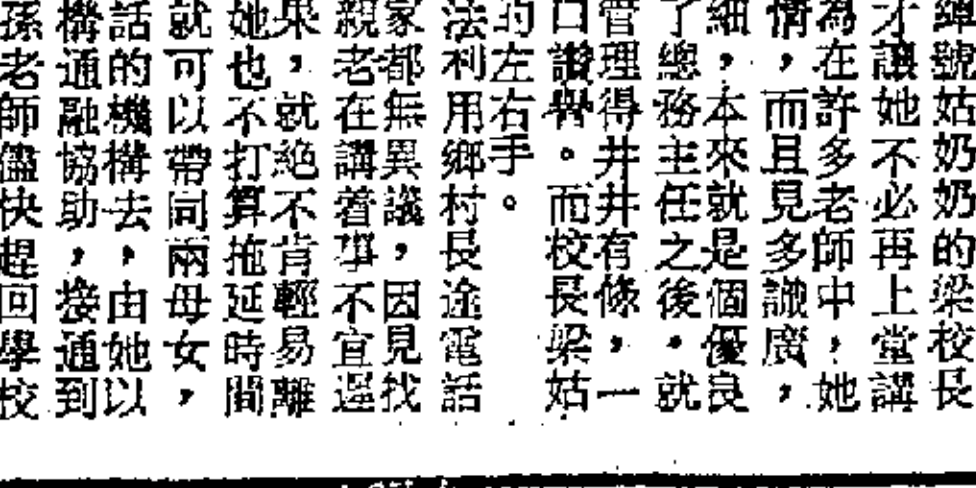 綽號姑奶奶的梁校長
才讓她不必再上堂講
為在許多老師中，她
情，而且見多識廣，
細，本來就是個優良
了總務主任之後，就
管理得井井有條，一
口讚譽。而校長梁姑
的左右手。
法利用鄉村長途電話
家都無異議，因見找
親老在講着事不宜遲
果，就絕不肯輕易離
她也不打算拖延時間
就可以帶同兩母女，
話的機構去，由她以
構通融協助，接通到
孫老師儘快趕回學校